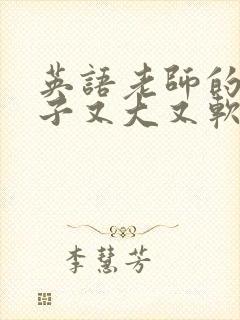 英語老師的
子又大又軟
李慧芳